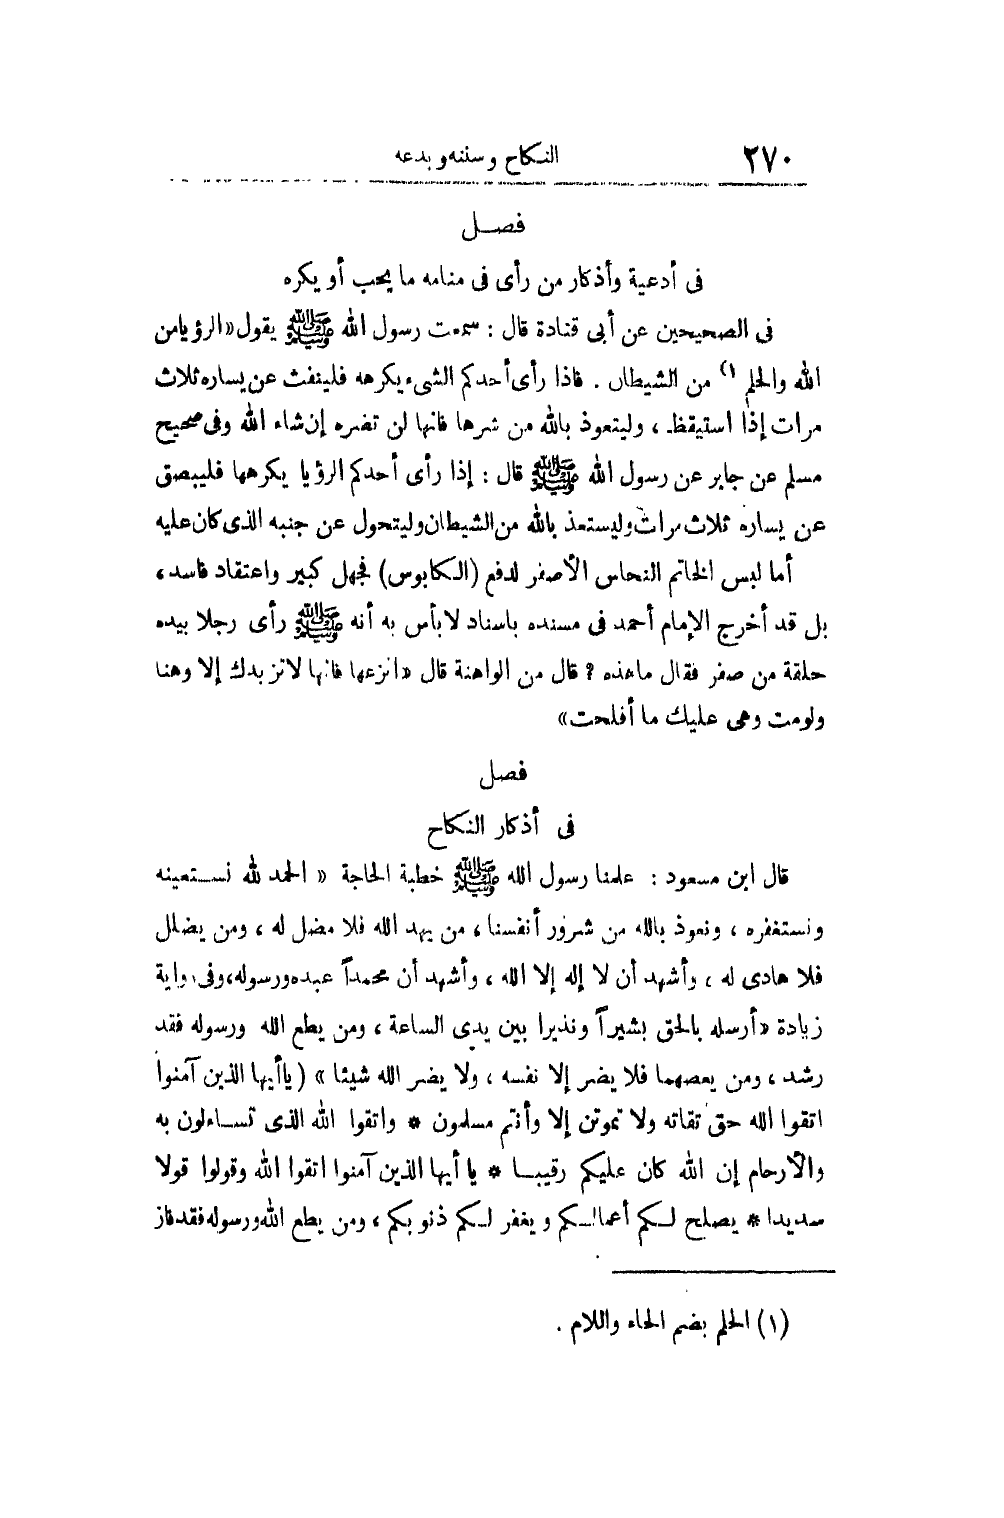 ٢٧٠ النكاح وسننه وبدعه
فصل
فى أدعية وأذكار من رأى فى منامه ما يحب أو يكره
فى الصحيحين عن أبى قتادة قال : سمعت رسول الله ﷺ يقول «الرؤيا من
الله والحلم (١) من الشيطان . فاذا رأى أحدكم الشىء يكرهه فلينفث عن يساره ثلاث
مرات إذا استيقظ ، وليتعوذ بالله من شرها فانها لن تضره إن شاء الله وفى صحيح
مسلم عن جابر عن رسول الله ﷺ قال : إذا رأى أحدكم الرؤيا يكرهها فليبصق
عن يساره ثلاث مرات وليستعذ بالله من الشيطان وليتحول عن جنبه الذى كان عليه
أما لبس الخاتم النحاس الأصفر لدفع (الكابوس) فجهل كبير واعتقاد فاسد ،
بل قد أخرج الإمام أحمد فى مسنده باسناد لا بأس به أنه ﷺ رأى رجلا بيده
حلقة من صفر فقال ماهذه ؟ قال من الواهنة قال «انزعها فانها لا تزيدك إلا وهنا
ولو مت وهى عليك ما أفلحت»
فصل
فى أذكار النكاح
قال ابن مسعود : علمنا رسول الله ﷺ خطبة الحاجة « الحمد لله نستعينه
ونستغفره ، ونعوذ بالله من شرور أنفسنا ، من يهد الله فلا مضل له ، ومن يضلل
فلا هادى له ، وأشهد أن لا إله إلا الله ، وأشهد أن محمداً عبده ورسوله، وفى رواية
زيادة «أرسله بالحق بشيراً ونذيرا بين يدى الساعة ، ومن يطع الله ورسوله فقد
رشد ، ومن يعصهما فلا يضر إلا نفسه ، ولا يضر الله شيئا » (ياأيها الذين آمنوا
اتقوا الله حق تقاته ولا تموتن إلا وأنتم مسلمون * واتقوا الله الذى تساءلون به
والأرحام إن الله كان عليكم رقيبا * يا أيها الذين آمنوا اتقوا الله وقولوا قولا
سديدا * يصلح لكم أعمالكم ويغفر لكم ذنوبكم ، ومن يطع الله ورسوله فقد فاز
(١) الحلم بضم الحاء واللام .